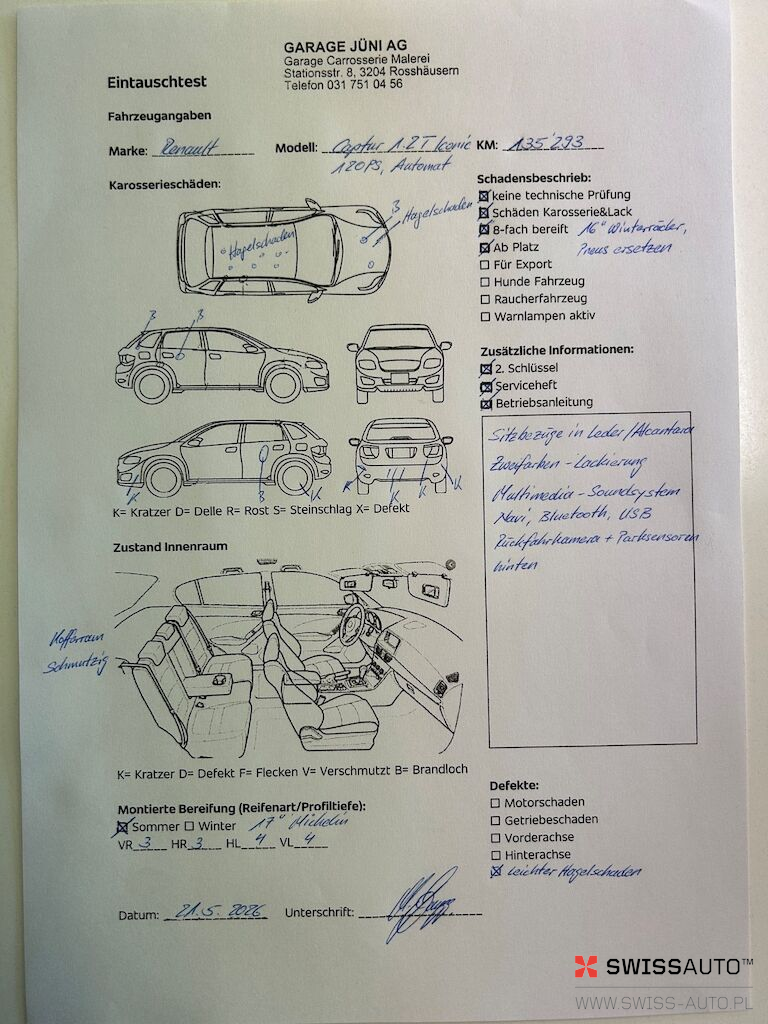 GARAGE JÜNI AG
Garage Carrosserie Malerei
Stationsstr. 8, 3204 Rosshäusern
Telefon 031 751 04 56
Eintauschtest
Fahrzeugangaben
Marke: Renault Modell: Captur 1.2T Iconic KM: 135'293
120PS, Automat
Karosserieschäden:
B
Hagelschaden
Hagelschaden
B B
K B K K K
K= Kratzer D= Delle R= Rost S= Steinschlag X= Defekt
Schadensbeschrieb:
keine technische Prüfung
Schäden Karosserie&Lack
8-fach bereift 16" Winterräder,
Ab Platz Pneus ersetzen
Für Export
Hunde Fahrzeug
Raucherfahrzeug
Warnlampen aktiv
Zusätzliche Informationen:
2. Schlüssel
Serviceheft
Betriebsanleitung
Sitzbezüge in Leder/Alcantara
Zweifarben-Lackierung
Multimedia-Soundsystem
Navi, Bluetooth, USB
Rückfahrkamera + Parksensoren
hinten
Zustand Innenraum
Kofferraum
schmutzig
K= Kratzer D= Defekt F= Flecken V= Verschmutzt B= Brandloch
Montierte Bereifung (Reifenart/Profiltiefe):
Sommer Winter 17" Michelin
VR 3 HR 3 HL 4 VL 4
Defekte:
Motorschaden
Getriebeschaden
Vorderachse
Hinterachse
Leichter Hagelschaden
Datum: 21.5.2026 Unterschrift:
SWISSAUTO™
WWW.SWISS-AUTO.PL